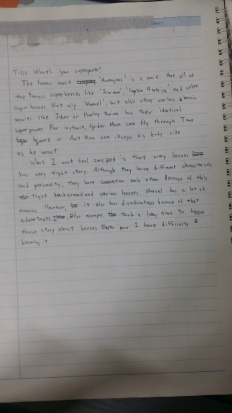 Title: What's your superpower?
The famous movie "Avengers" is a movie that all of
the famous superheroes like "Ironman" "Captain America" and other
superheroes. Not only "Marvel", but also other various
movies like Joker or Harley Quinn has their identical
superpower. For instance, Spider Man can fly through
square or Ant Man can change his body size
as he wants.
What I most feel is that every heroes
has very tight story. Although they have different characteristic
and personality, they have connection each other. Because of this
tight background and various heroes, Marvel has a lot of
However, it also has disadvantages because of that
advantages. For example, a long time to
those story about heroes. Even now I have difficulty
knowing it.